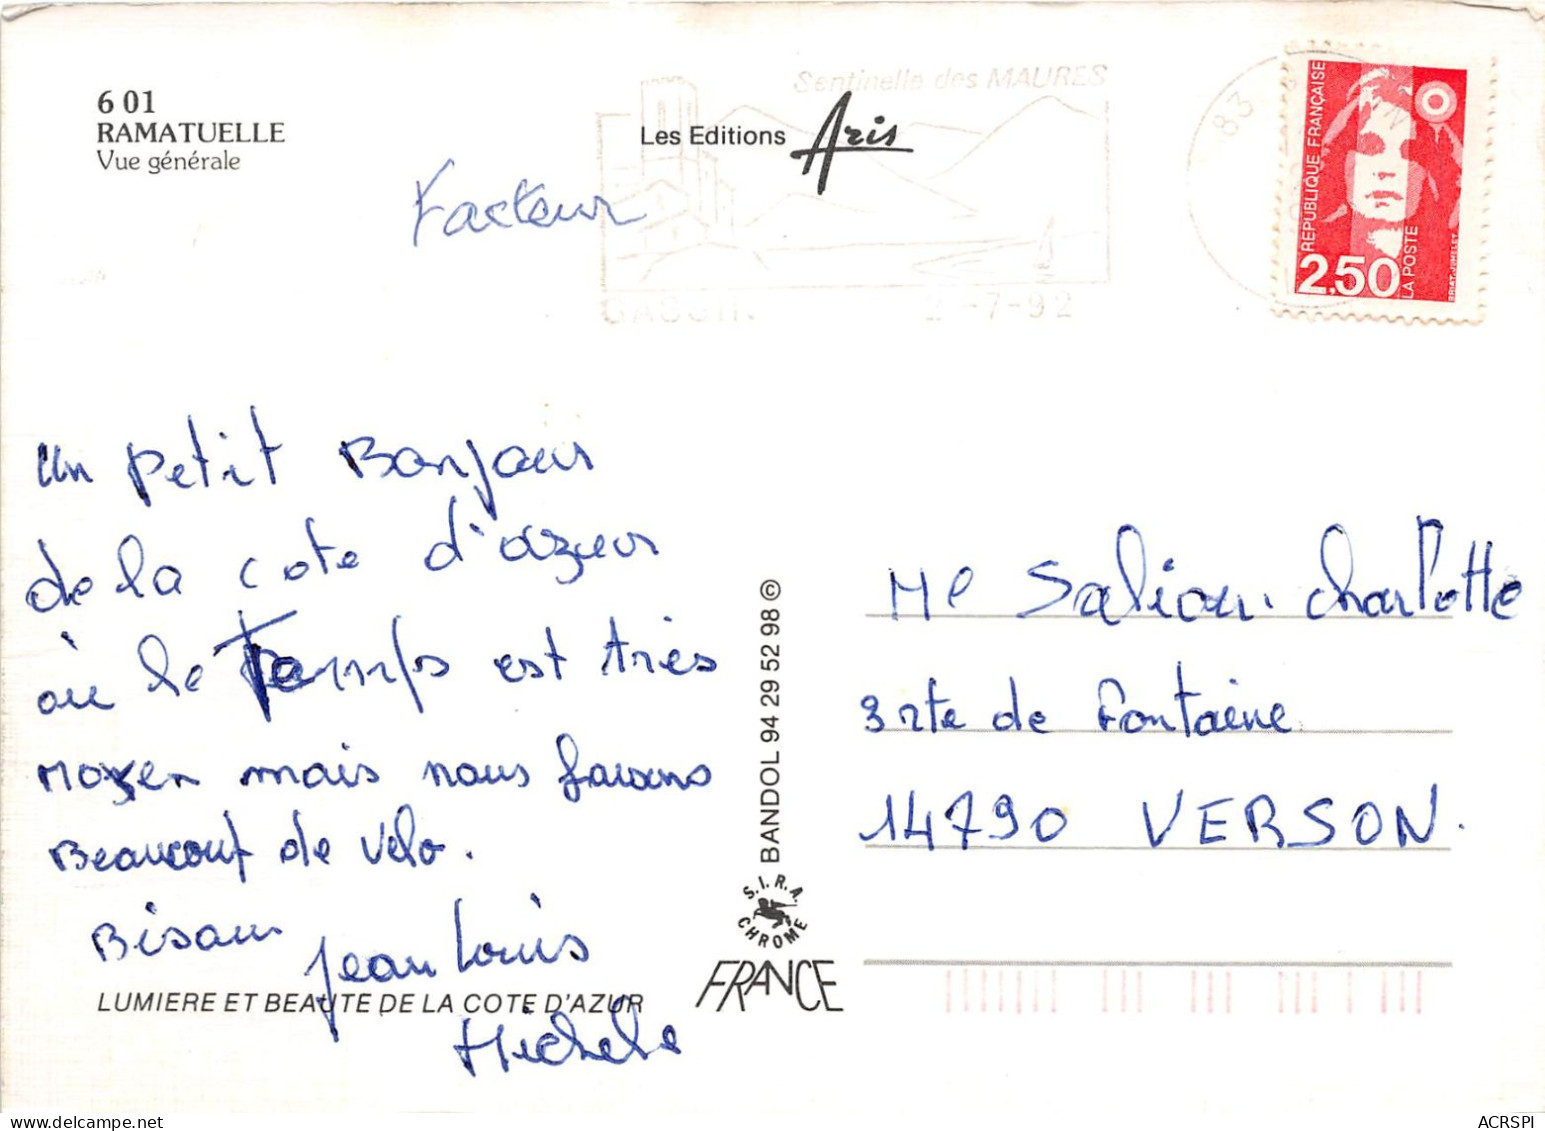 6 01
RAMATUELLE
Vue générale
Sentinelle des MAURES
Les Editions Aris
Facteur
GASSIN
2 -7-92
83
REPUBLIQUE FRANÇAISE
2,50
LA POSTE
BRIAT-JUMELET
un petit Bonjour
de la cote d'azur
où le Temps est très
moyen mais nous faisons
Beaucoup de vélo.
Bisous
Jean Louis
Michele
LUMIERE ET BEAUTE DE LA COTE D'AZUR
BANDOL 94 29 52 98 ©
S.I.R.A.
CHROME
FRANCE
Me Saliou Charlotte
3 rte de Fontaine
14790 VERSON.
ACRSPI